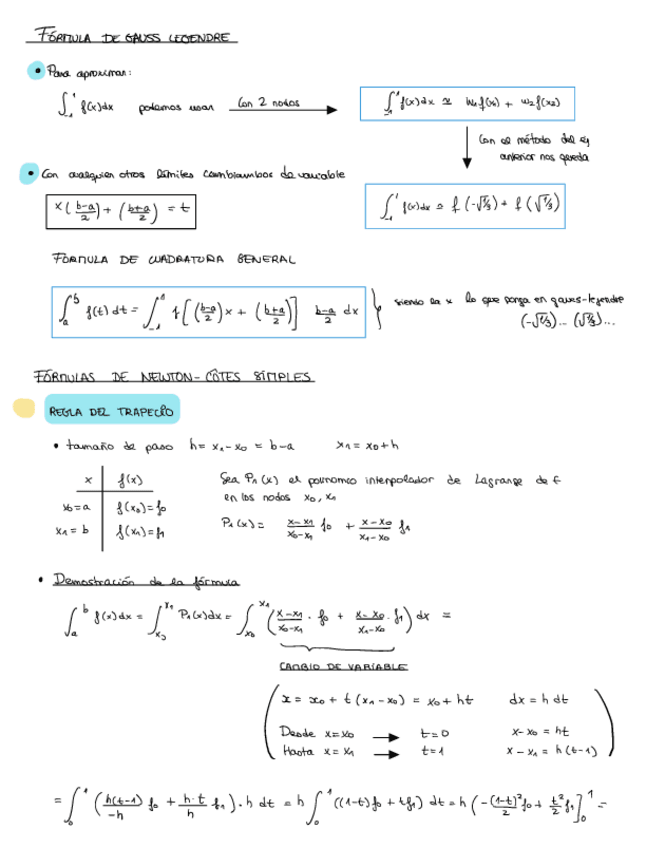 FÓRMULA DE GAUSS LEGENDRE
• Para aproximar:
∫₋₁¹ f(x)dx podemos usar Con 2 nodos → ∫₋₁¹ f(x)dx ≃ w₁f(x₁) + w₂f(x₂)
Con el método del ej
anterior nos queda
• Con cualquier otros límites cambiamos de variable
x((b-a)/2) + ((b+a)/2) = t
∫₋₁¹ f(x)dx ≃ f(-√1/3) + f(√1/3)
FÓRMULA DE CUADRATURA GENERAL
∫ₐᵇ f(t)dt = ∫₋₁¹ f[((b-a)/2)x + ((b+a)/2)] (b-a)/2 dx } siendo la x lo que ponga en gauss-legendre
(-√1/3)... (√1/3)...
FÓRMULAS DE NEWTON-CÔTES SIMPLES
REGLA DEL TRAPECIO
• tamaño de paso h = x₁-x₀ = b-a x₁ = x₀+h
x | f(x)
x₀=a | f(x₀)=f₀
x₁=b | f(x₁)=f₁
Sea P₁(x) el polinomio interpolador de Lagrange de f
en los nodos x₀, x₁
P₁(x) = (x-x₁)/(x₀-x₁) f₀ + (x-x₀)/(x₁-x₀) f₁
• Demostración de la fórmula
∫ₐᵇ f(x)dx = ∫ₓ₀ˣ¹ P₁(x)dx = ∫ₓ₀ˣ¹ ((x-x₁)/(x₀-x₁) · f₀ + (x-x₀)/(x₁-x₀) · f₁) dx =
CAMBIO DE VARIABLE
x = x₀ + t(x₁-x₀) = x₀ + ht dx = h dt
Desde x=x₀ → t=0 x-x₀ = ht
Hasta x=x₁ → t=1 x-x₁ = h(t-1)
= ∫₀¹ (h(t-1)/-h f₀ + h·t/h f₁) · h dt = h ∫₀¹ ((1-t)f₀ + tf₁) dt = h(-(1-t)²/2 f₀ + t²/2 f₁]₀¹ =